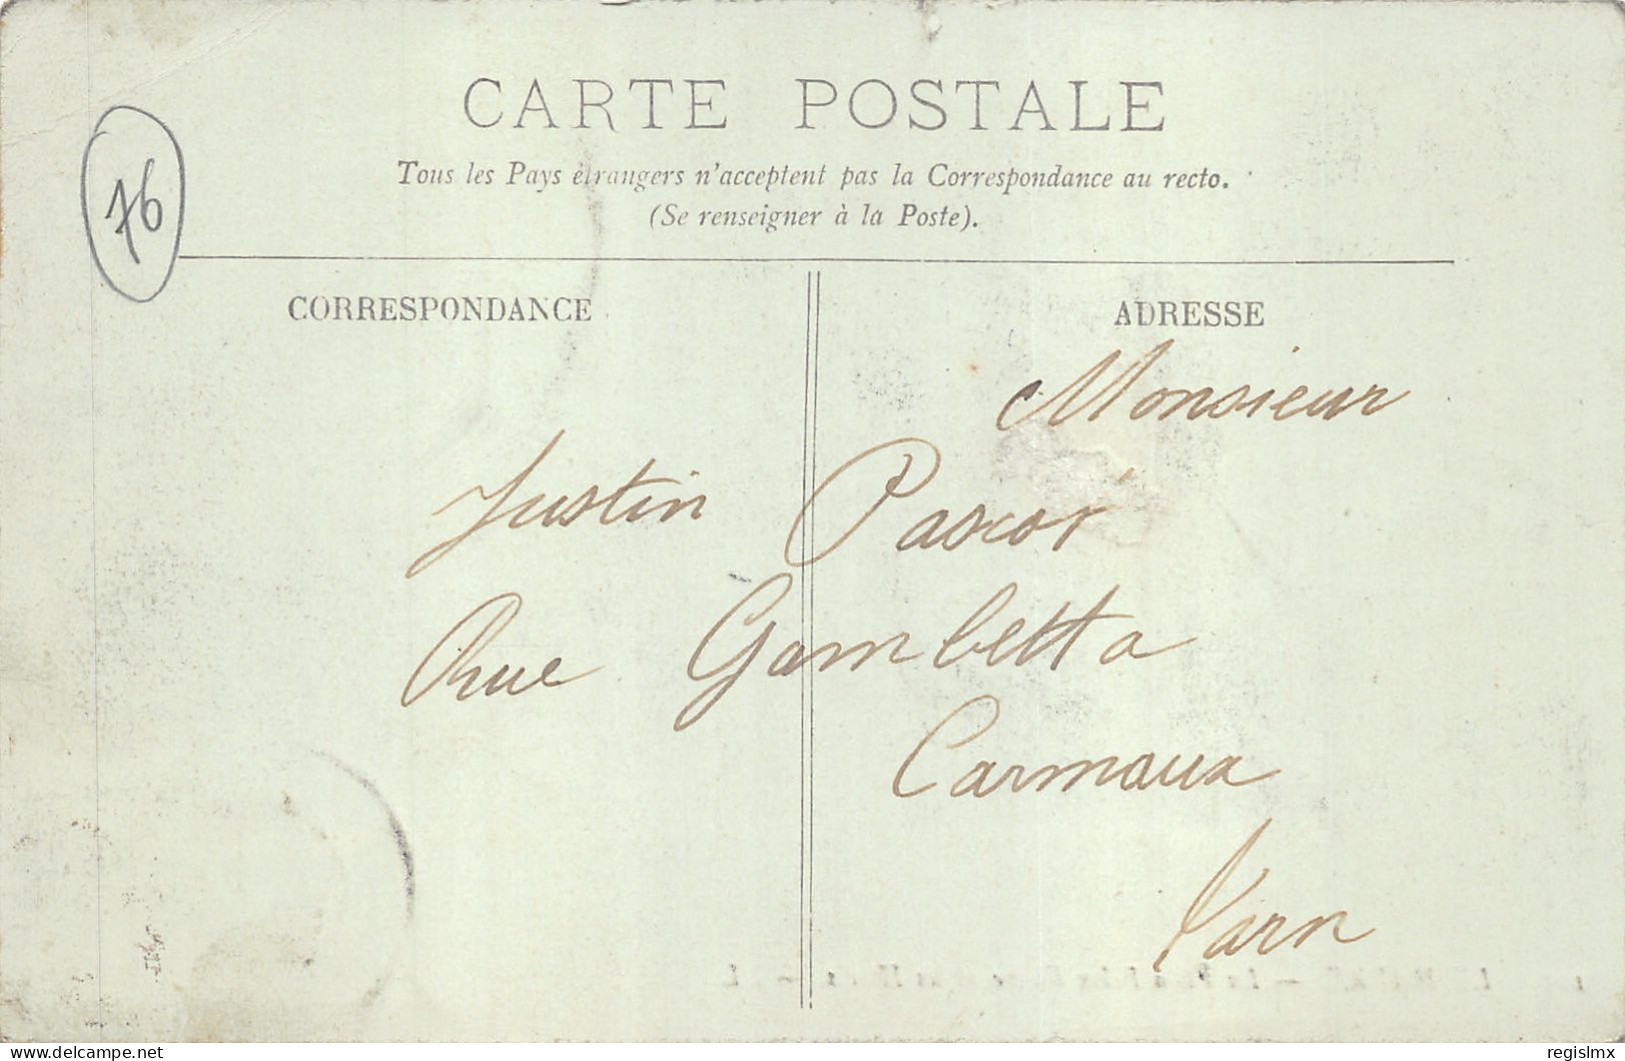 CARTE POSTALE
Tous les Pays étrangers n'acceptent pas la Correspondance au recto.
(Se renseigner à la Poste).
76
CORRESPONDANCE
ADRESSE
Monsieur
Justin
Rue Gambetta
Carmaux
Tarn
regislmx